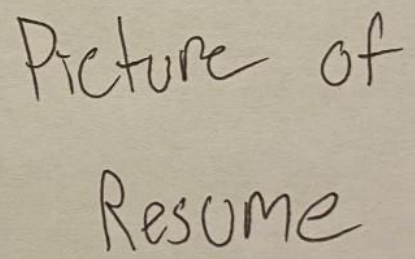 Picture of
Resume